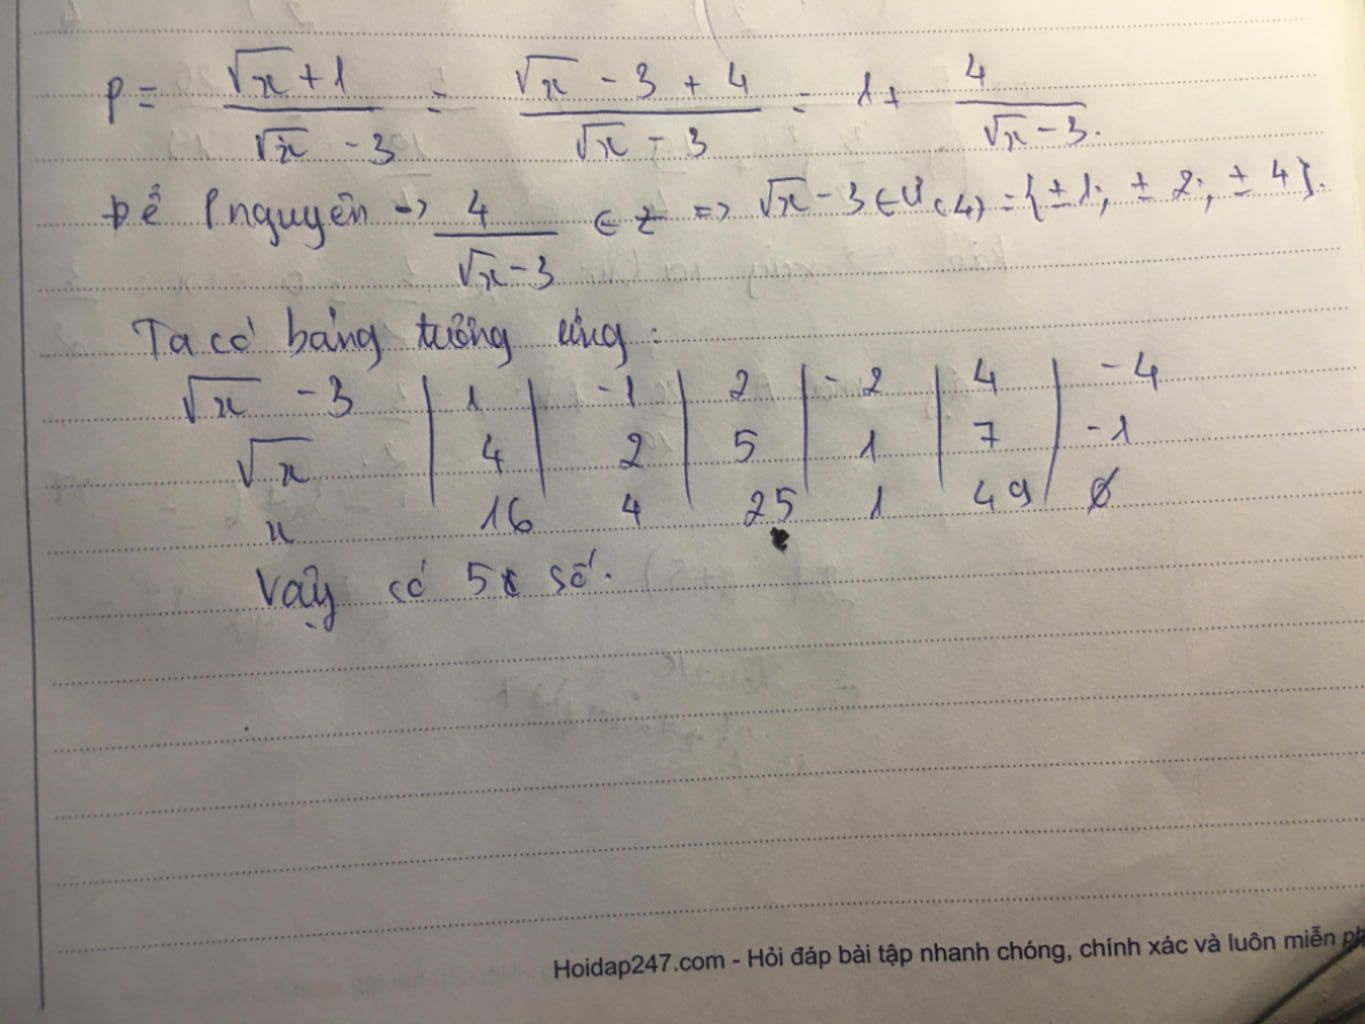 P = \frac{\sqrt{x}+1}{\sqrt{x}-3} = \frac{\sqrt{x}-3+4}{\sqrt{x}-3} = 1 + \frac{4}{\sqrt{x}-3}.
Để P nguyên -> \frac{4}{\sqrt{x}-3} ∈ Z => \sqrt{x}-3 ∈ Ư(4) = {±1; ±2; ±4}.
Ta có bảng tương ứng:
\sqrt{x} -3 | 1 | -1 | 2 | -2 | 4 | -4
\sqrt{x} | 4 | 2 | 5 | 1 | 7 | -1
x 16 4 25 1 49 ∅
Vậy có 5 số.
Hoidap247.com - Hỏi đáp bài tập nhanh chóng, chính xác và luôn miễn ph